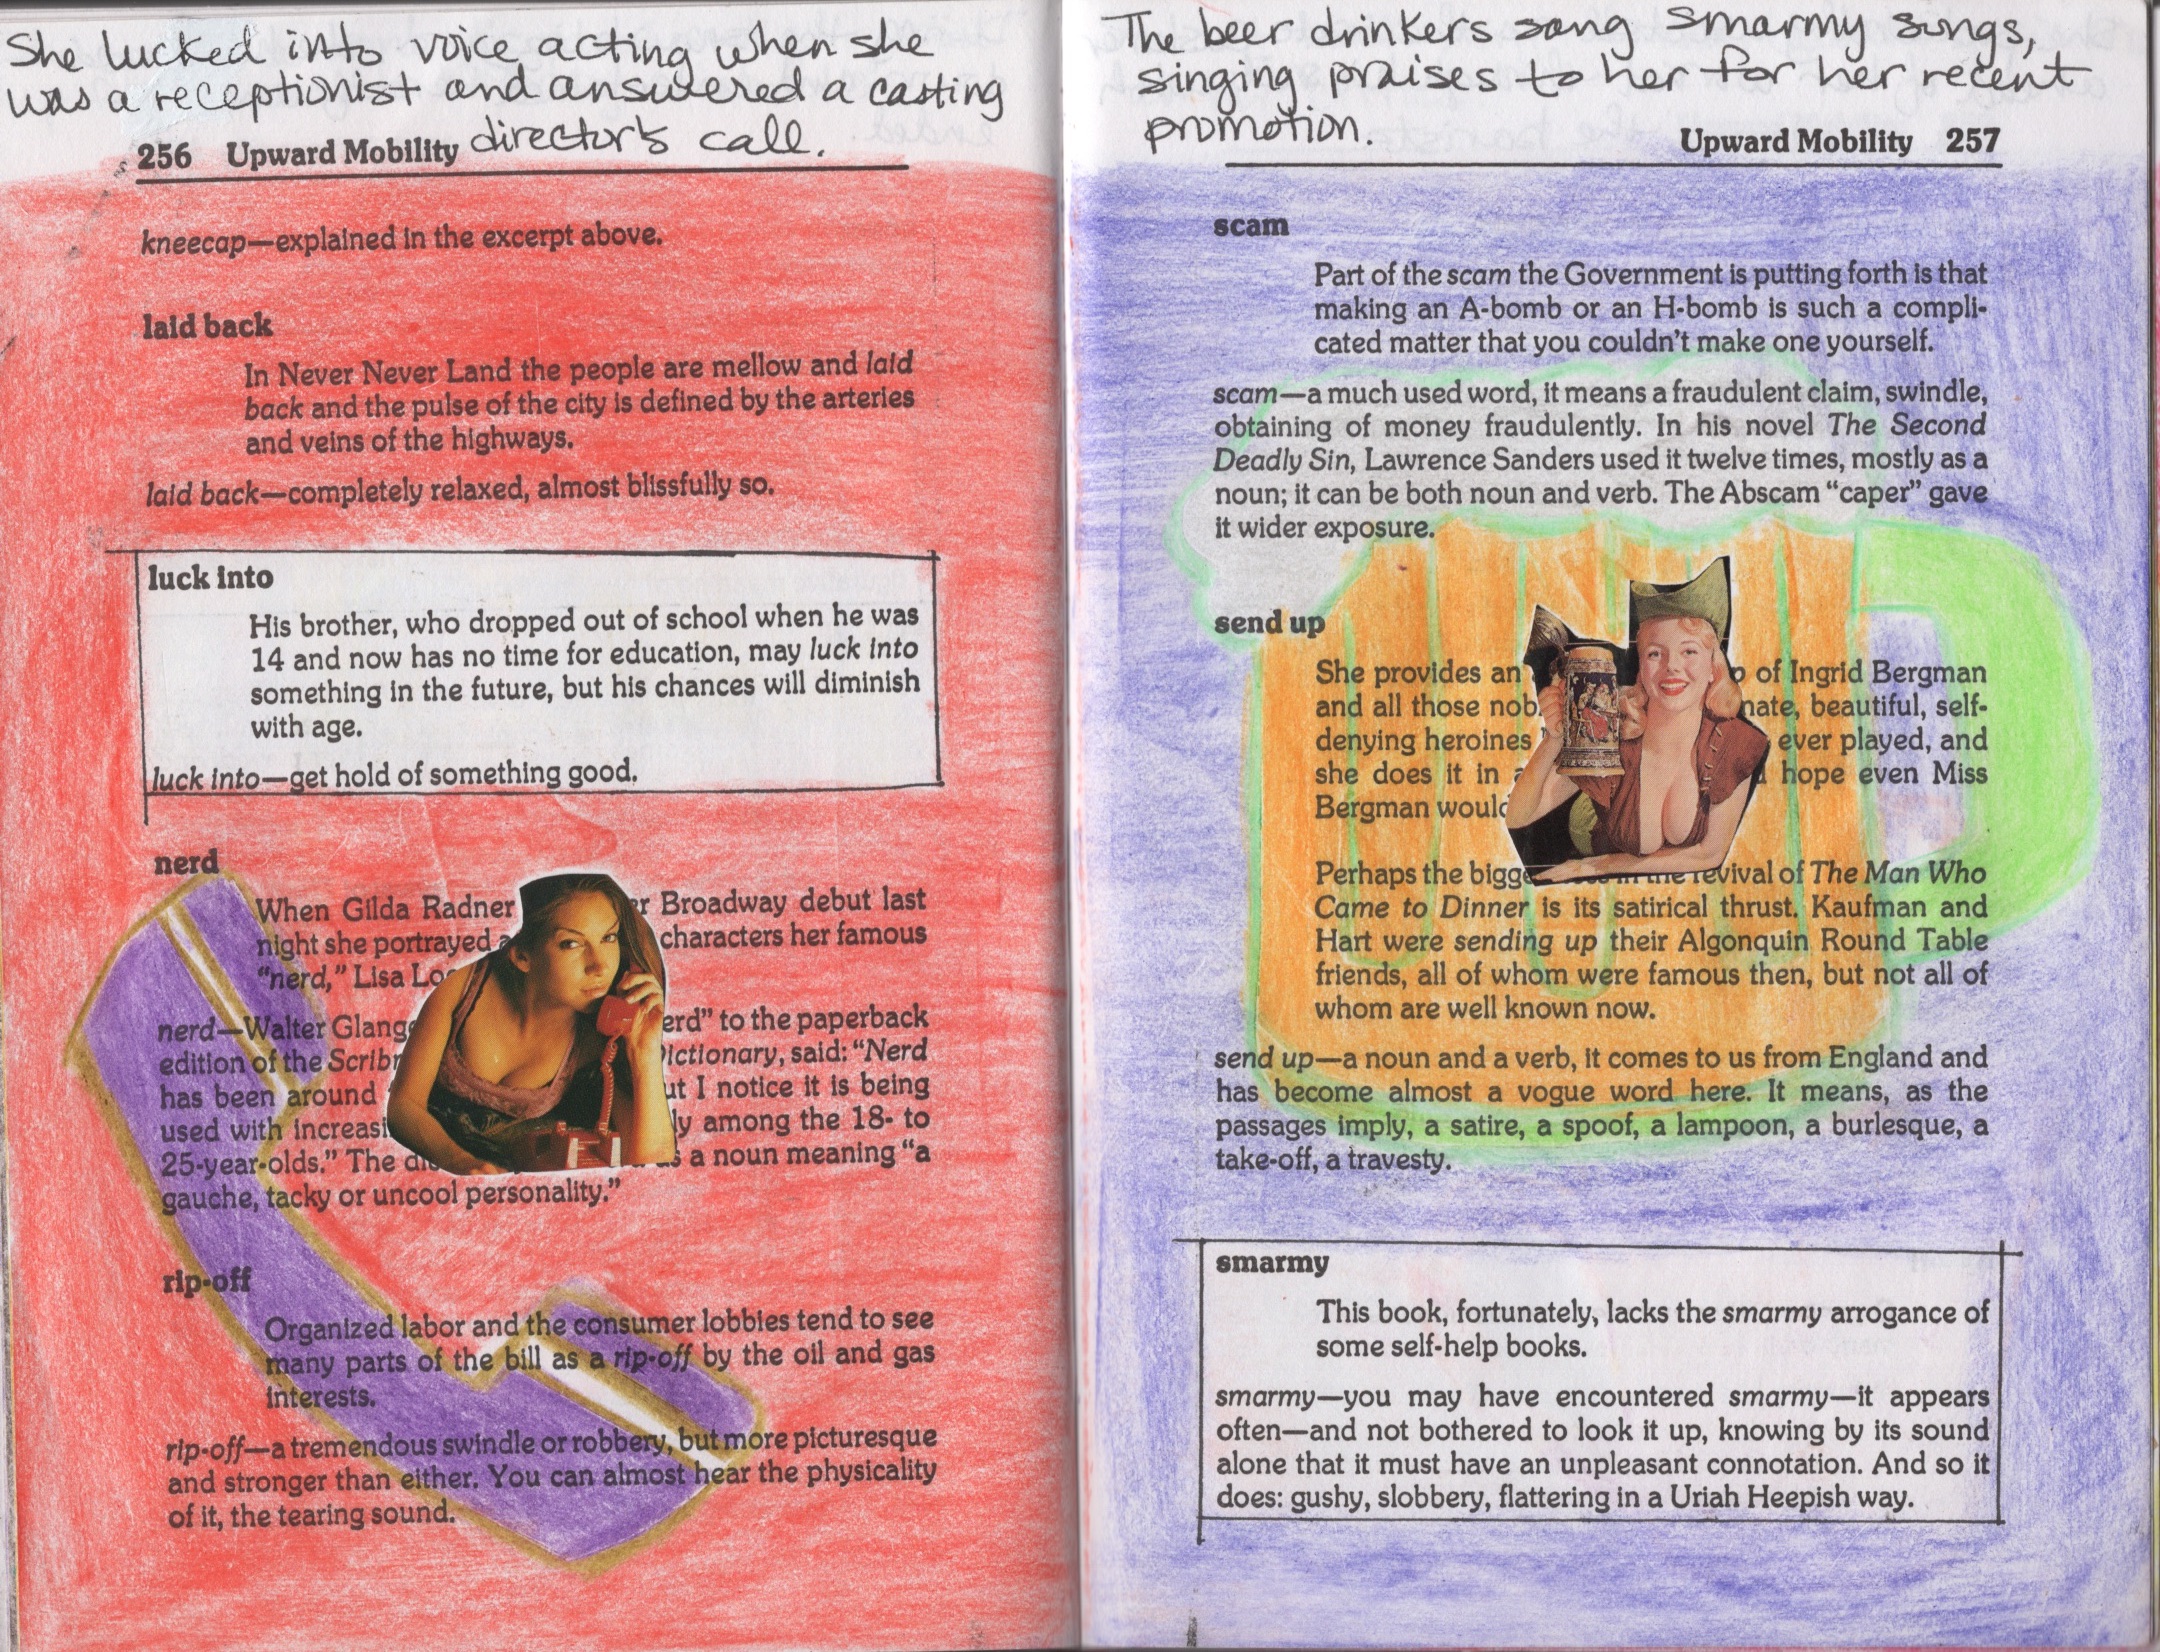 She lucked into voice acting when she
was a receptionist and answered a casting
director's call.
256 Upward Mobility
kneecap—explained in the excerpt above.
laid back
In Never Never Land the people are mellow and laid
back and the pulse of the city is defined by the arteries
and veins of the highways.
laid back—completely relaxed, almost blissfully so.
luck into
His brother, who dropped out of school when he was
14 and now has no time for education, may luck into
something in the future, but his chances will diminish
with age.
luck into—get hold of something good.
nerd
When Gilda Radner Broadway debut last
night she portrayed characters her famous
“nerd,” Lisa
nerd—Walter to the paperback
edition of the said: “Nerd
has been around I notice it is being
used with among the 18- to
25-year-olds.” The a noun meaning “a
gauche, tacky or uncool personality.”
rip-off
Organized labor and the consumer lobbies tend to see
many parts of the bill as a rip-off by the oil and gas
interests.
rip-off—a tremendous swindle or robbery, but more picturesque
and stronger than either. You can almost hear the physicality
of it, the tearing sound.
The beer drinkers sang smarmy songs,
singing praises to her for her recent
promotion.
Upward Mobility 257
scam
Part of the scam the Government is putting forth is that
making an A-bomb or an H-bomb is such a compli-
cated matter that you couldn't make one yourself.
scam—a much used word, it means a fraudulent claim, swindle,
obtaining of money fraudulently. In his novel The Second
Deadly Sin, Lawrence Sanders used it twelve times, mostly as a
noun; it can be both noun and verb. The Abscam “caper” gave
it wider exposure.
send up
She provides an of Ingrid Bergman
and all those beautiful, self-
denying heroines ever played, and
she does it in hope even Miss
Bergman would
Perhaps the revival of The Man Who
Came to Dinner is its satirical thrust. Kaufman and
Hart were sending up their Algonquin Round Table
friends, all of whom were famous then, but not all of
whom are well known now.
send up—a noun and a verb, it comes to us from England and
has become almost a vogue word here. It means, as the
passages imply, a satire, a spoof, a lampoon, a burlesque, a
take-off, a travesty.
smarmy
This book, fortunately, lacks the smarmy arrogance of
some self-help books.
smarmy—you may have encountered smarmy—it appears
often—and not bothered to look it up, knowing by its sound
alone that it must have an unpleasant connotation. And so it
does: gushy, slobbery, flattering in a Uriah Heepish way.